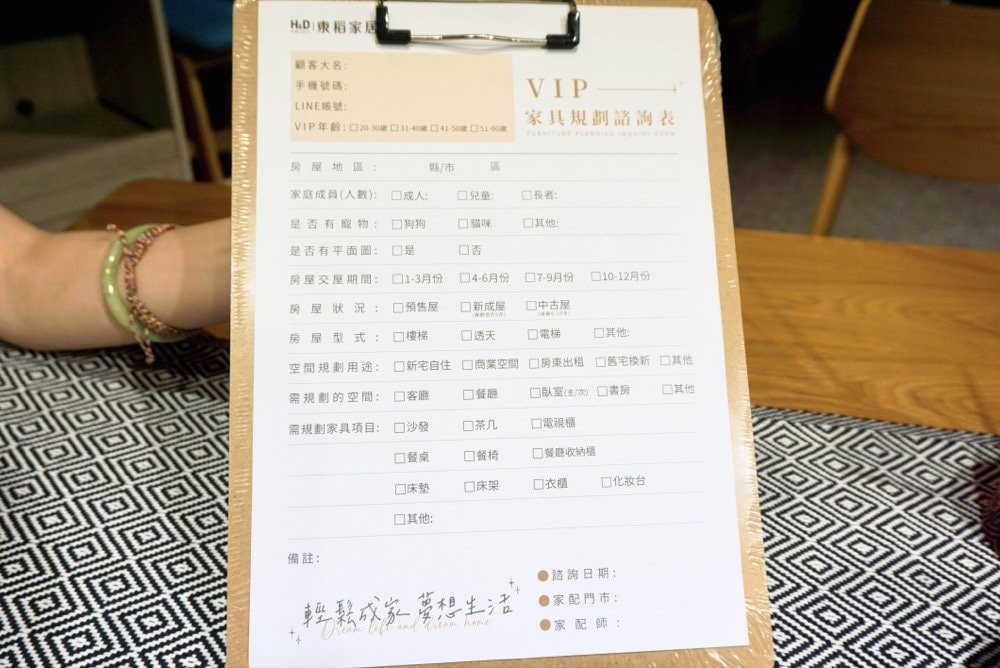 H&D 東稻家居
顧客大名:
手機號碼:
LINE帳號:
VIP年齡: □20-30歲 □31-40歲 □41-50歲 □51-60歲
VIP
家具規劃諮詢表
FURNITURE PLANNING INQUIRY FORM
房屋地區: 縣/市 區
家庭成員(人數): □成人: □兒童: □長者:
是否有寵物: □狗狗 □貓咪 □其他:
是否有平面圖: □是 □否
房屋交屋期間: □1-3月份 □4-6月份 □7-9月份 □10-12月份
房屋狀況: □預售屋 □新成屋 □中古屋
房屋型式: □樓梯 □透天 □電梯 □其他:
空間規劃用途: □新宅自住 □商業空間 □房東出租 □舊宅換新 □其他
需規劃的空間: □客廳 □餐廳 □臥室(主/次) □書房 □其他
需規劃家具項目: □沙發 □茶几 □電視櫃
□餐桌 □餐椅 □餐廳收納櫃
□床墊 □床架 □衣櫃 □化妝台
□其他:
備註:
●諮詢日期:
●家配門市:
●家配師:
輕鬆成家 夢想生活
Dream life and dream home